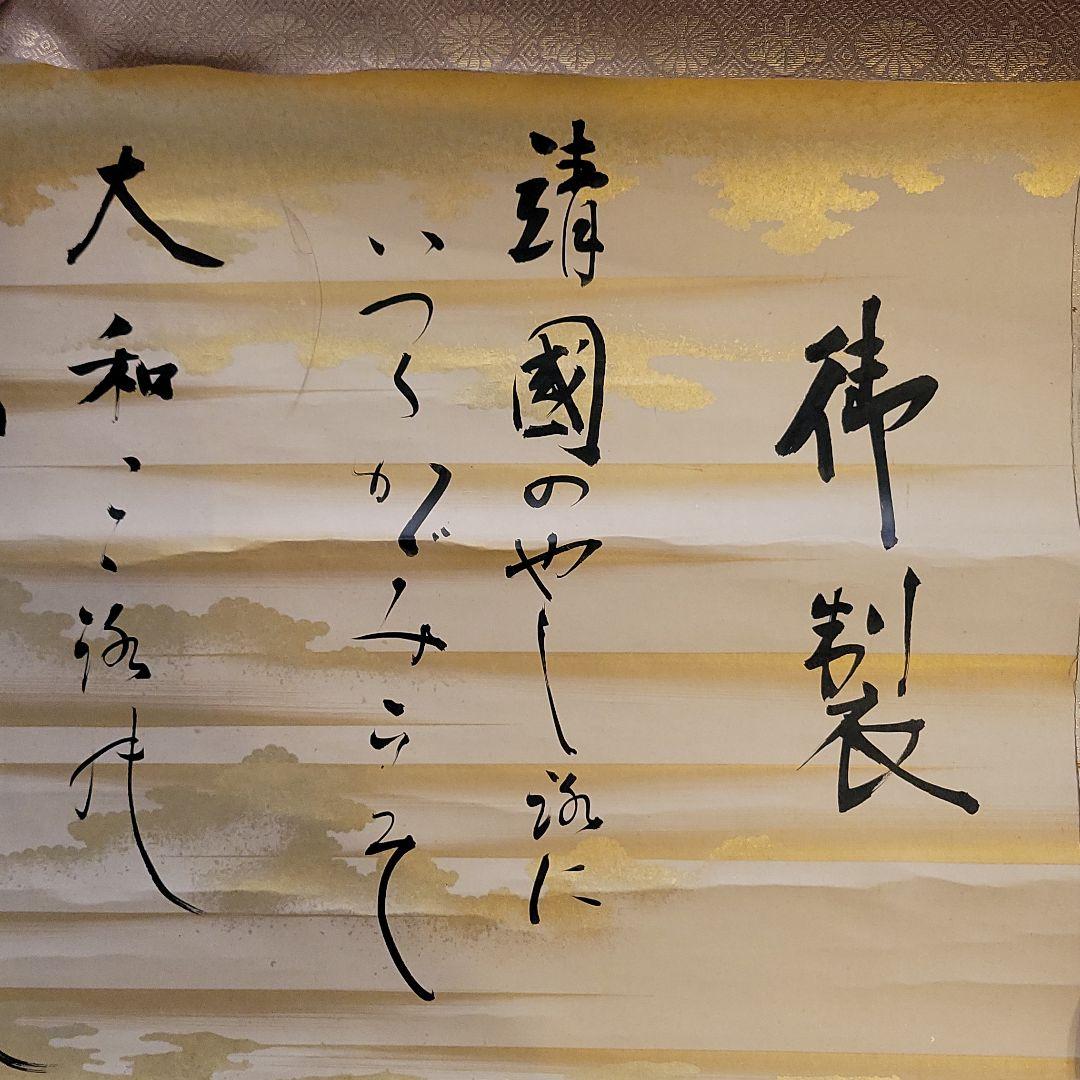 御製
靖國のやし路に
いつくかゞみこそ
大和こゝ路の